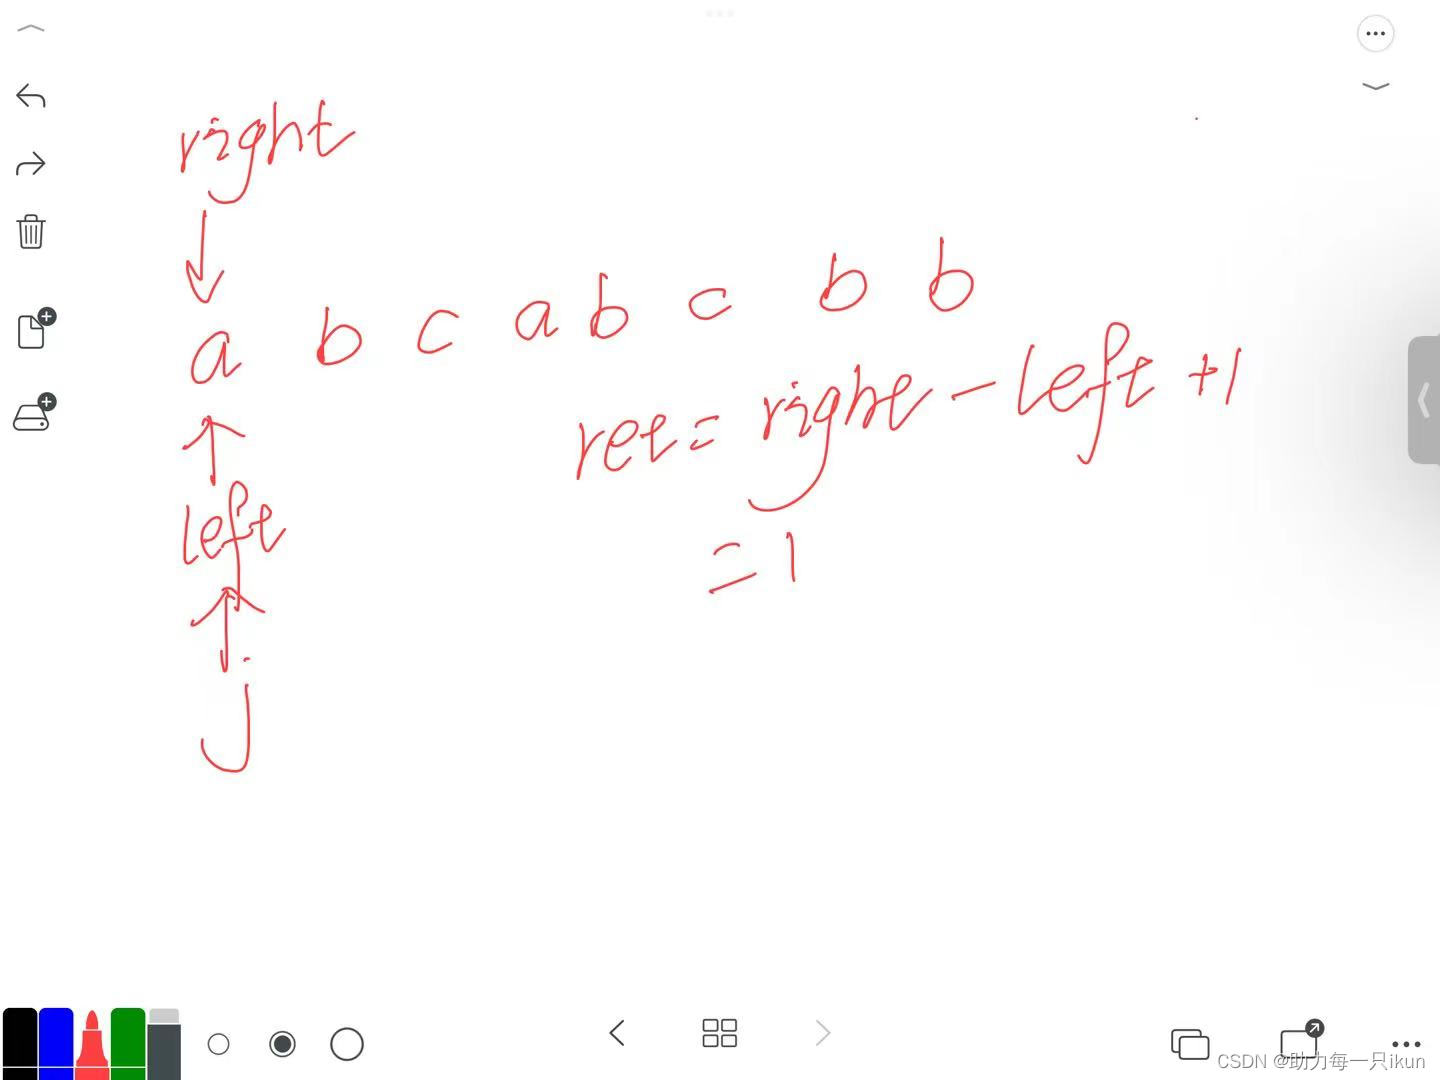 right
a b c a b c b b
ret = right - left + 1
= 1
left
j
CSDN @助力每一只ikun